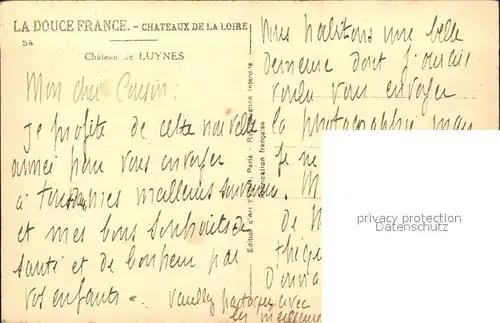 LA DOUCE FRANCE. - CHATEAUX DE LA LOIRE
54
Château de LUYNES
Mon cher Cousin.
Je profite de cette nouvelle
année pour vous envoyer
à tous mes meilleurs souvenirs
et mes bons souhaits de
santé et de bonheur par
vos enfants.
Veuillez partager avec
les meilleurs
Nous habitons une belle
demeure dont j'aurais
voulu vous envoyer
la photographie mais
je ne
M
de
Edition d'Art Y Paris - Reproduction interdite
Fabrication française
privacy protection
Datenschutz